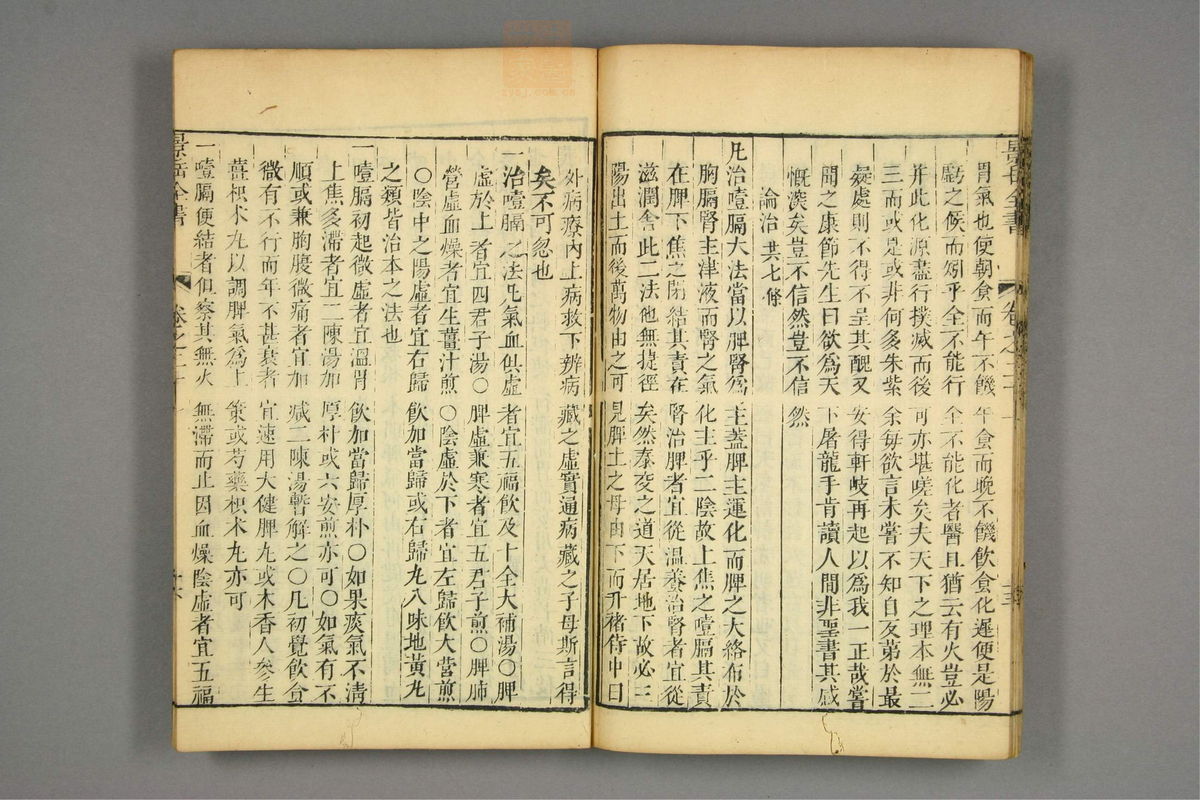 胃氣也使朝食而午不饑午食而晚不饑飲食化遲便是陽
虧之候而矧乎全不能行全不能化者醫且猶云有火豈必
并此化源盡行撲滅而後可亦堪嗟矣夫天下之理本無二
三而或是或非何多朱紫余每欲言未嘗不知自反第於最
疑處則不得不呈其醜又安得軒岐再起以為我一正哉嘗
聞之康節先生曰欲為天下屠龍手肯讀人間非聖書其感
慨深矣豈不信然豈不信然
論治 共七條
凡治噎膈大法當以脾腎為主蓋脾主運化而脾之大絡布於
胸膈腎主津液而腎之氣化主乎二陰故上焦之噎膈其責
在脾下焦之閉結其責在腎治脾者宜從溫養治腎者宜從
滋潤舍此二法他無捷徑矣然泰交之道天居地下故必三
陽出土而後萬物由之可見脾土之母由下而升褚侍中曰
外病療內上病救下辨病藏之虛實通病藏之子母斯言得
矣不可忽也
一治噎膈之法凡氣血俱虛者宜五福飲及十全大補湯〇脾
虛於上者宜四君子湯〇脾虛兼寒者宜五君子煎〇脾肺
營虛血燥者宜生薑汁煎〇陰虛於下者宜左歸飲大營煎
〇陰中之陽虛者宜右歸飲加當歸或右歸丸八味地黃丸
之類皆治本之法也
一噎膈初起微虛者宜溫胃飲加當歸厚朴〇如果痰氣不清
上焦多滯者宜二陳湯加厚朴或六安煎亦可〇如氣有不
順或兼胸腹微痛者宜加減二陳湯暫解之〇凡初覺飲食
微有不行而年不甚衰者宜速用大健脾丸或木香人參生
薑枳朮丸以調脾氣為上策或芍藥枳朮丸亦可
一噎膈便結者但察其無火無滯而止因血燥陰虛者宜五福
景岳全書
卷之二十一
景岳全書
卷之二十一